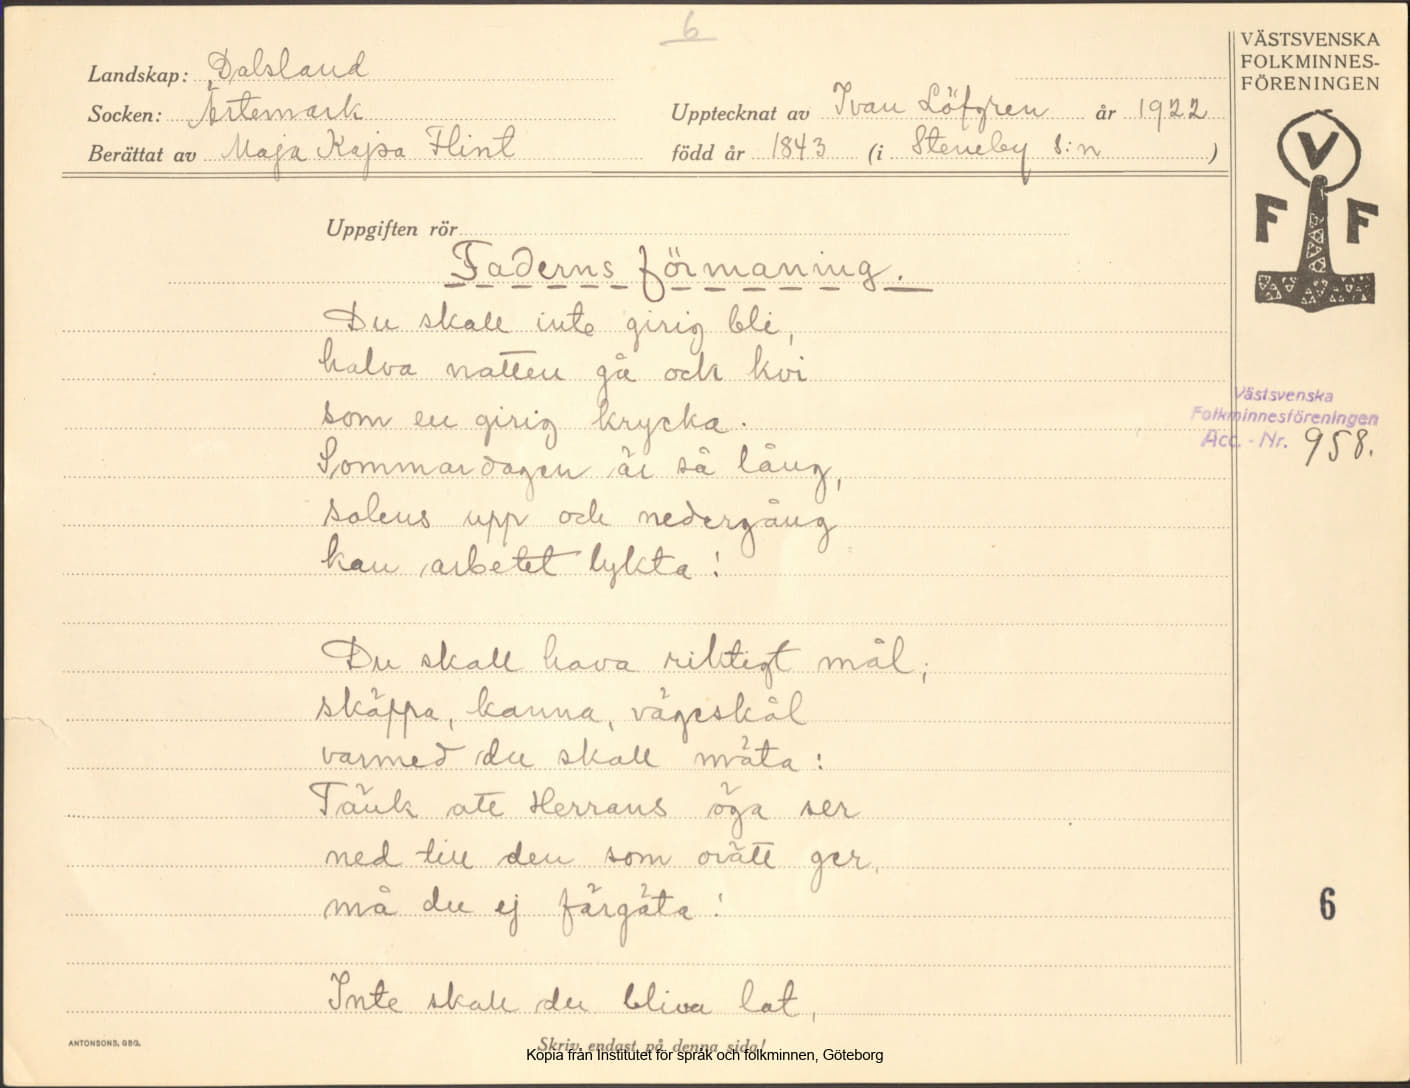 6
Landskap: Dalsland
Socken: Ärtemark
Berättat av Maja Kajsa Flint
Upptecknat av Ivan Löfgren år 1922
född år 1843 (i Steneby s:n)
VÄSTSVENSKA
FOLKMINNES-
FÖRENINGEN
V
F F
Uppgiften rör
Faderns förmaning.
Du skall inte girig bli,
halva natten gå och kvi
som en girig krycka.
Sommardagen är så lång,
solens upp och nedergång
kan arbetet lykta!
Västsvenska
Folkminnesföreningen
Acc. - Nr. 958.
Du skall hava riktigt mål;
skäppa, kanna, vägeskål
varmed du skall mäta:
Tänk att Herrans öga ser
ned till den som orätt ger,
må du ej färgäta!
6
Inte skall du bliva lat,
ANTONSONS, GBG.
Skriv endast på denna sida!
Kopia från Institutet för språk och folkminnen, Göteborg